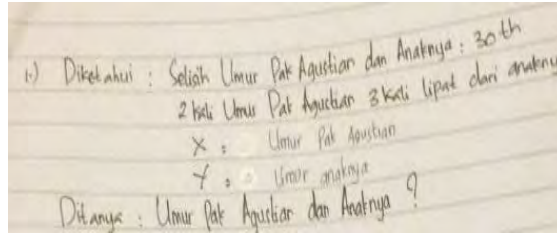 1.) Diketahui : Selisih Umur Pak Agustian dan Anaknya : 30 th
2 kali Umur Pak Agustian 3 kali lipat dari anakny
X : Umur Pak Agustian
Y : Umur anaknya
Ditanya : Umur Pak Agustian dan Anaknya ?